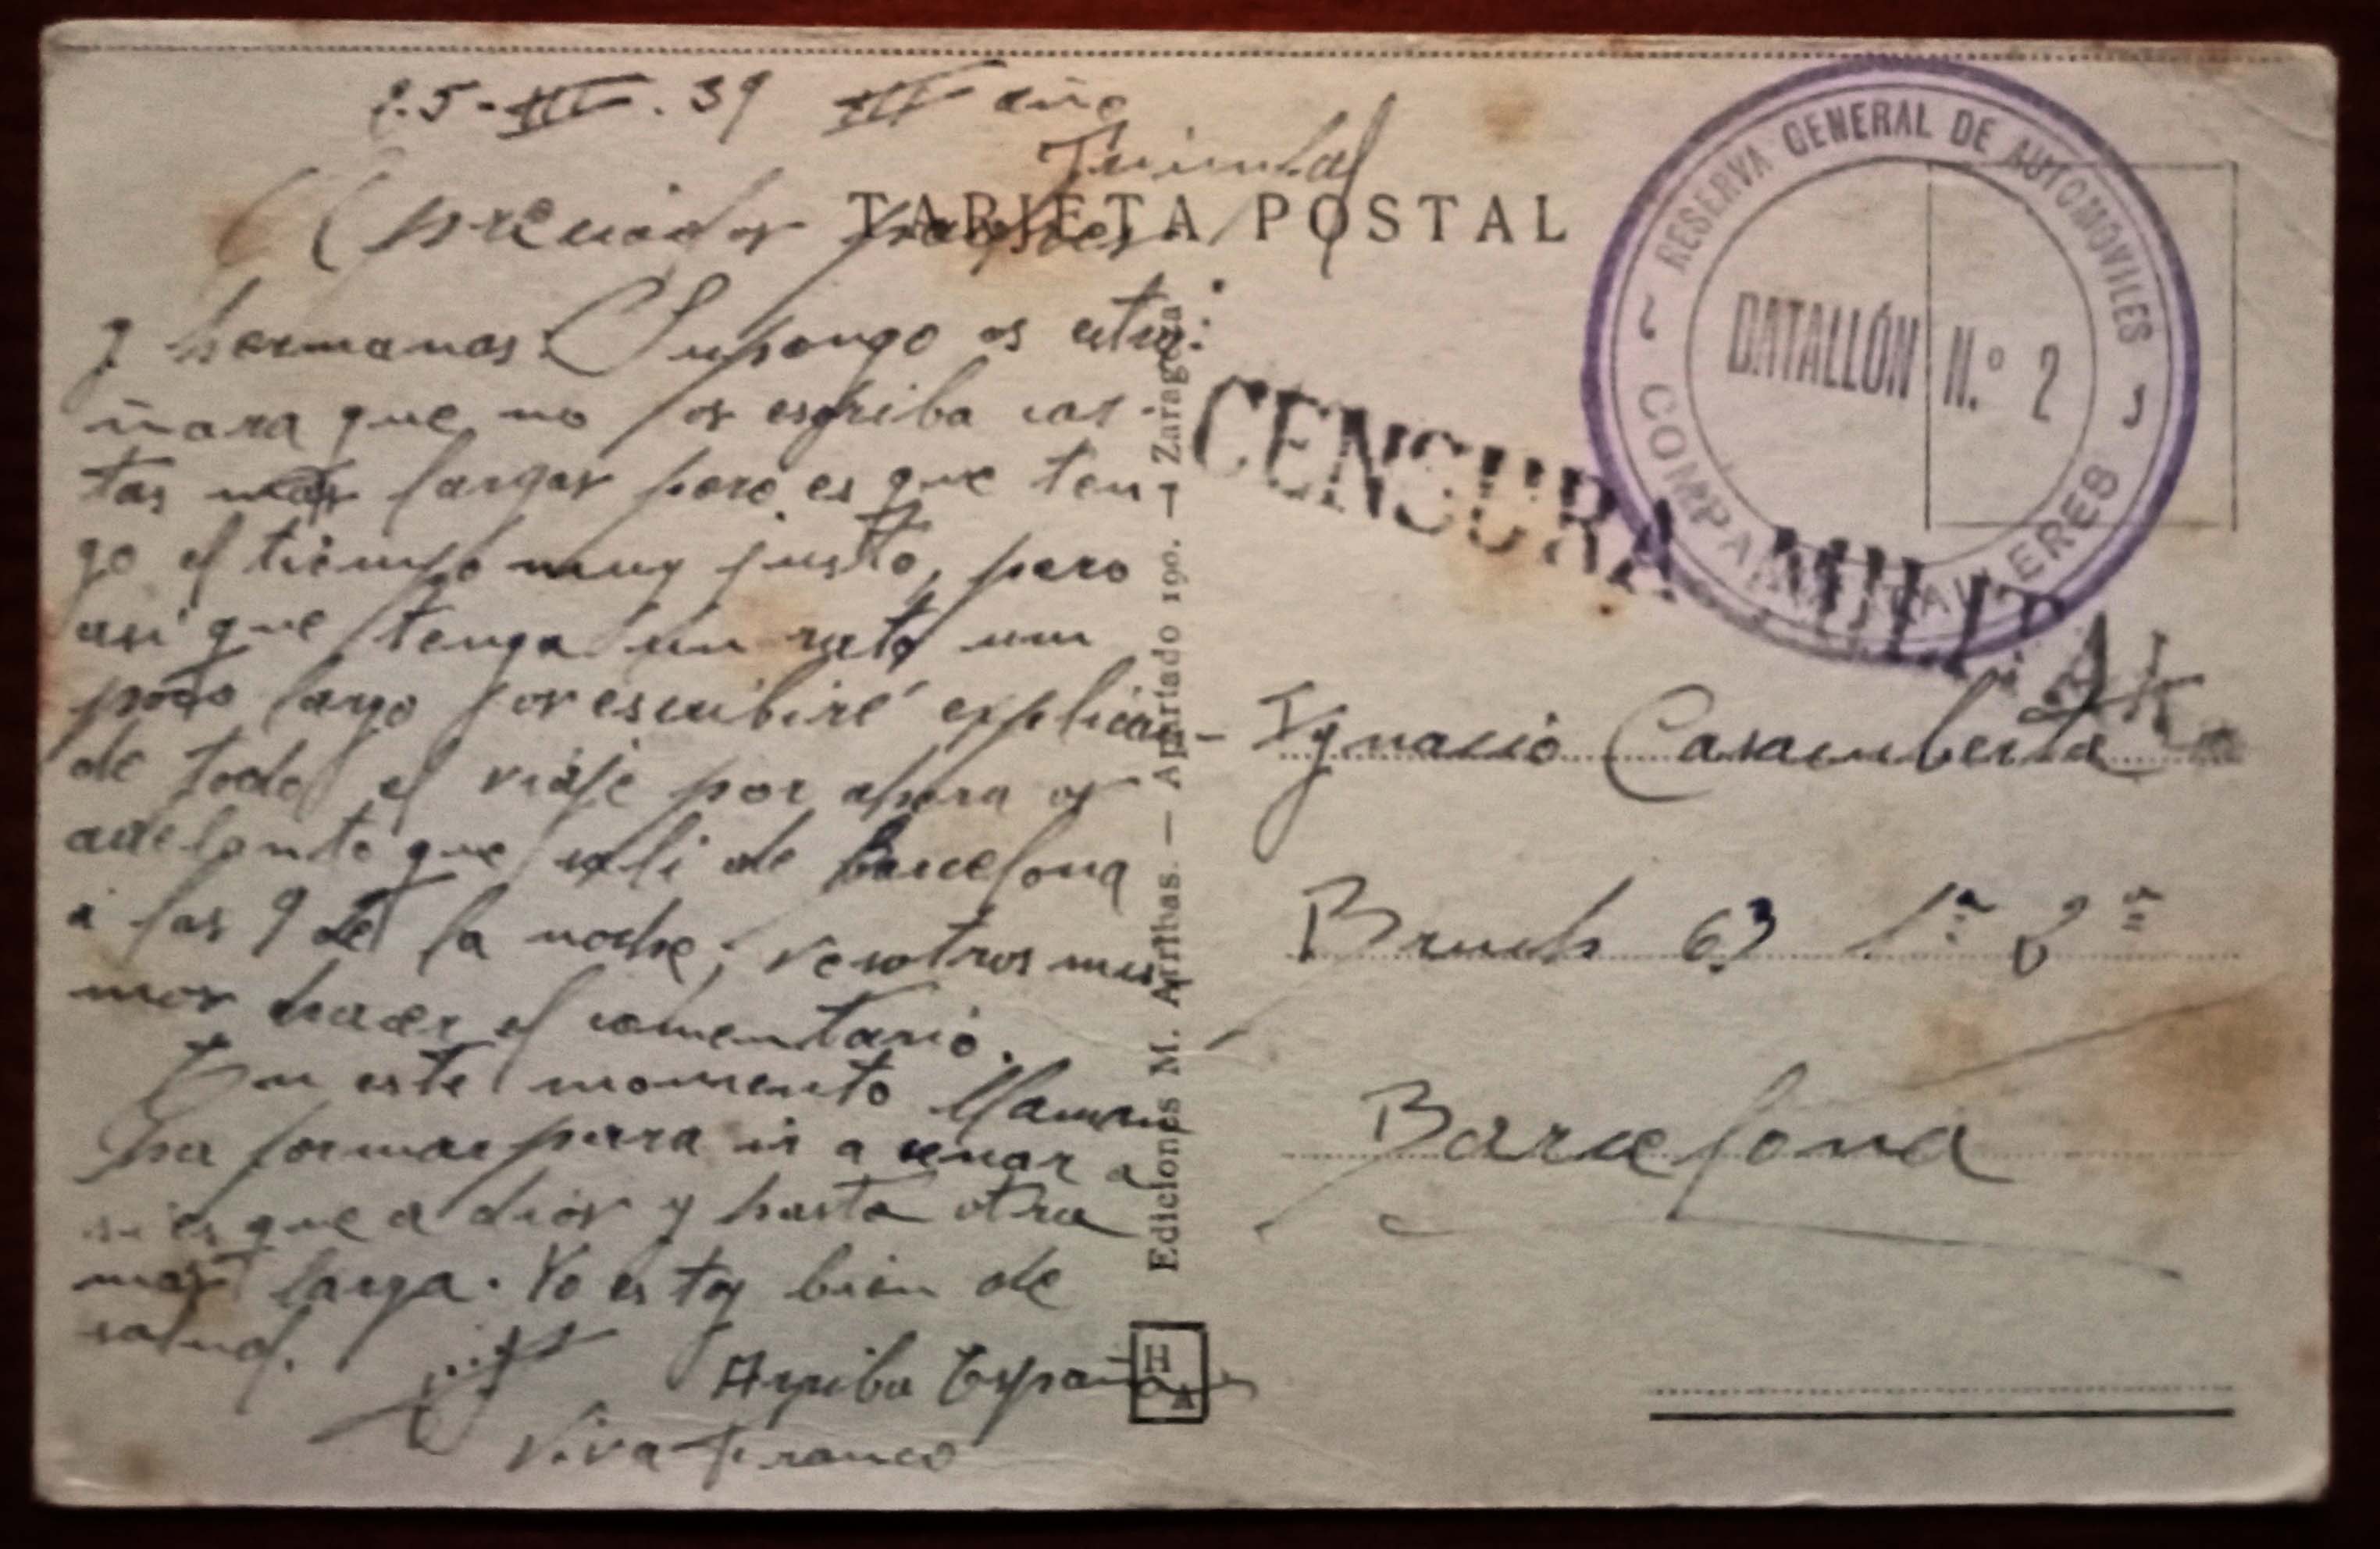 25-III-39 III año
Triunfal
TARJETA POSTAL
Apreciados padres
y hermanas: Supongo os extra-
ñara que no os escriba car-
tas mas largas pero es que ten-
go el tiempo muy justo, pero
asi que tenga un rato un
poco largo os escribiré explican-
de todo el viaje por ahora os
adelanto que sali de Barcelona
a las 9 de la noche, vosotros mis-
mos hacer el comentario.
En este momento llaman
pa formar para ir a cenar a
si es que a dios y hasta otra
mas larga. Yo estoy bien de
salud.
Arriba España
Viva Franco
Ediciones M. Arribas. — Apartado 190. — Zaragoza
H
A
RESERVA GENERAL DE AUTOMOVILES
BATALLÓN N.º 2
COMPAÑIA TALLERES
CENSURA MILITAR
Ignacio Casamberta
Bruch 63 1º 2ª
Barcelona